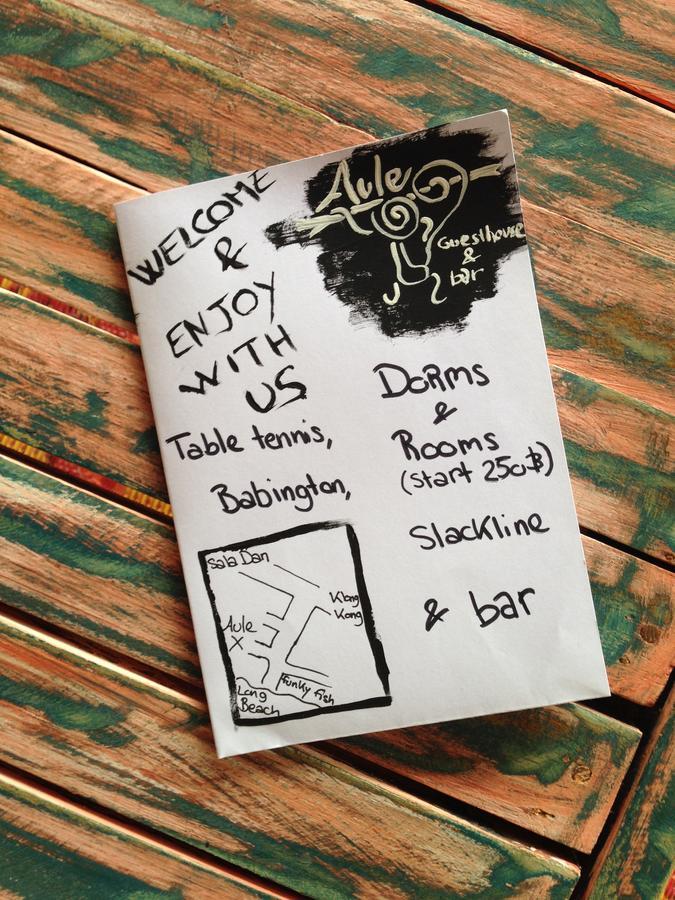 WELCOME
&
ENJOY
WITH
US
Table tennis,
Babington,
Aule
Guesthouse
&
bar
Dorms
&
Rooms
(start 250฿)
Slackline
& bar
Sala Dan
Klong
Kong
Aule
X
Funky Fish
Long
Beach